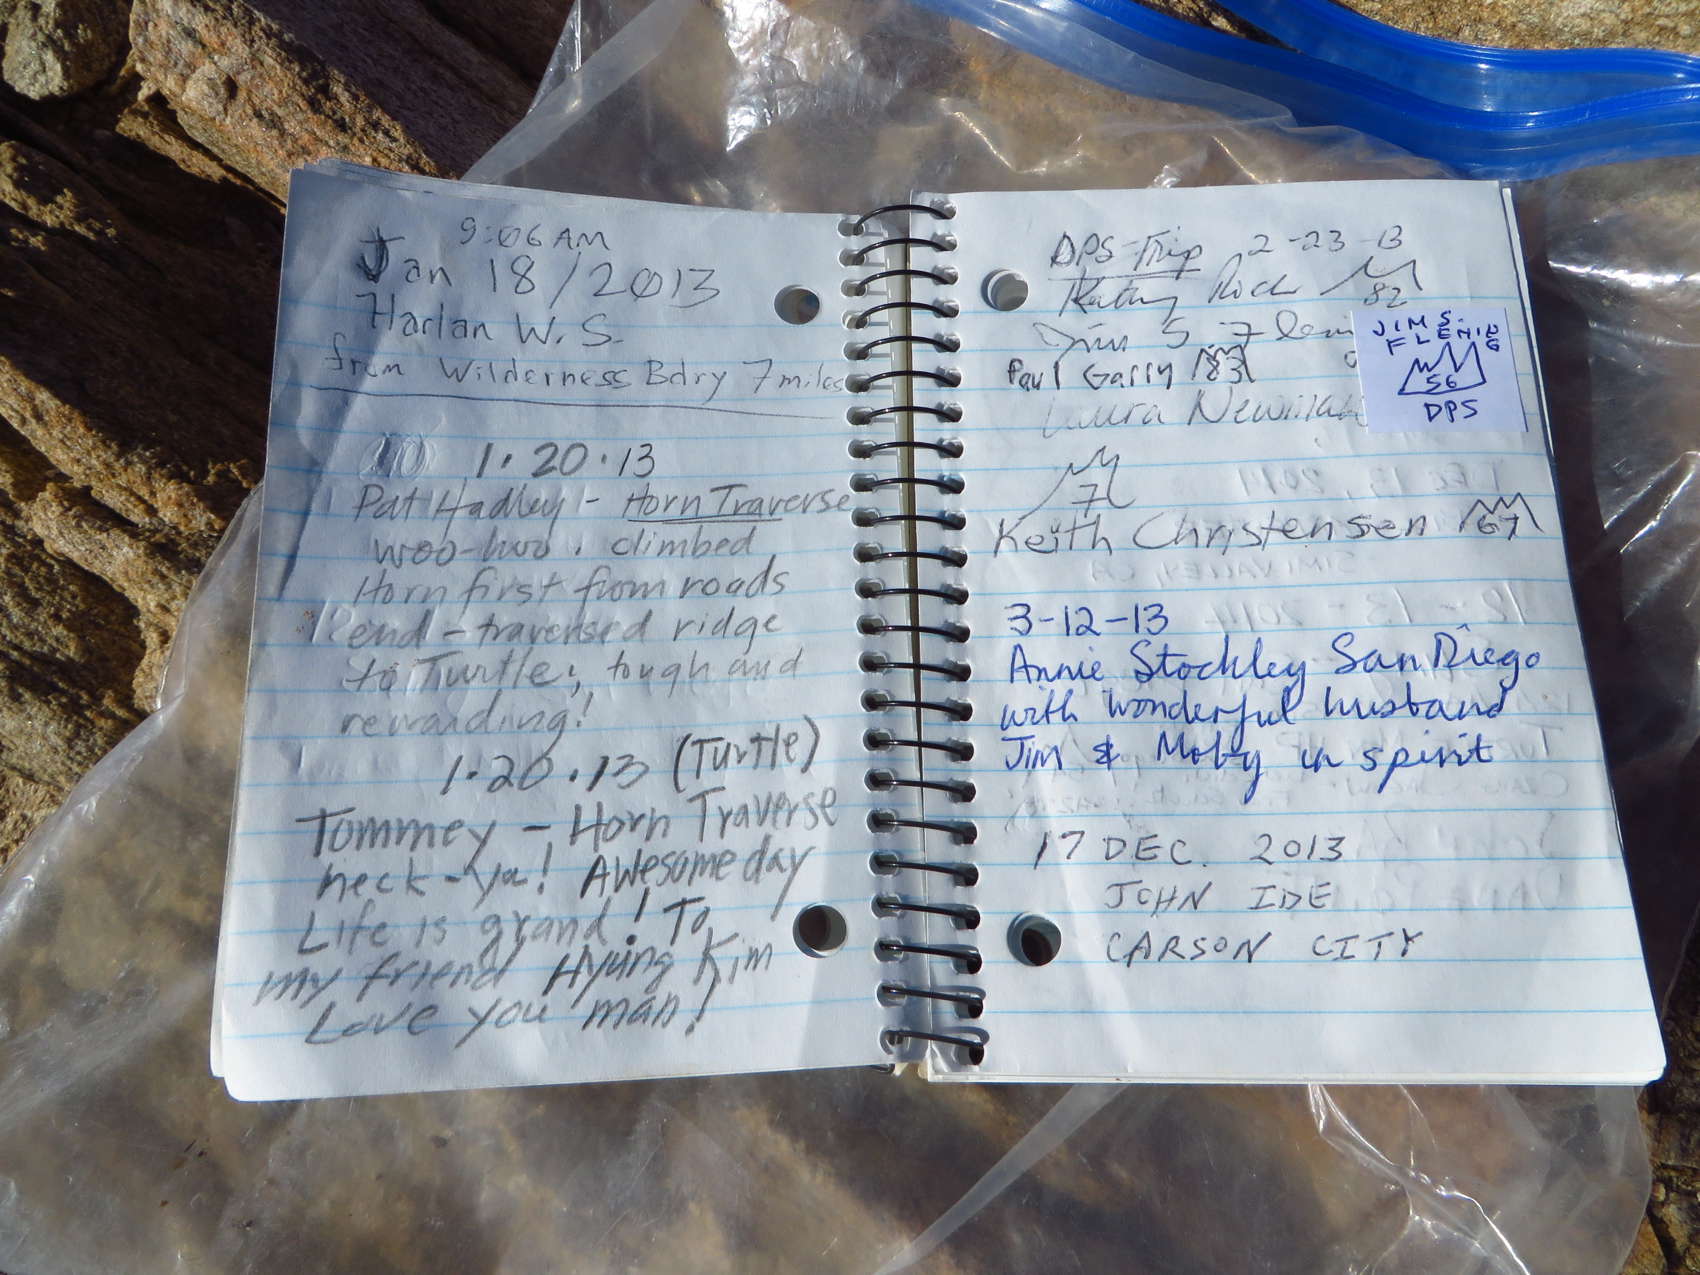 9:06 AM
Jan 18/2013
Harlan W. S.
from Wilderness Bdry 7 miles
1.20.13
Pat Hadley - Horn Traverse
woo-hoo. climbed
Horn first from roads
end - traversed ridge
to Turtle; tough and
rewarding!
1.20.13 (Turtle)
Tommey - Horn Traverse
heck-ya! Awesome day
Life is grand! To
my friend Hyung Kim
Love you man!
DPS-Trip 2-23-13
Kathy Rich 82
Jim S. Flem
Paul Garry 83
Laura Newman
7
Keith Christensen 67
JIM S.
FLEMING
56
DPS
3-12-13
Annie Stockley San Diego
with wonderful husband
Jim & Moby in spirit
17 DEC. 2013
JOHN IDE
CARSON CITY